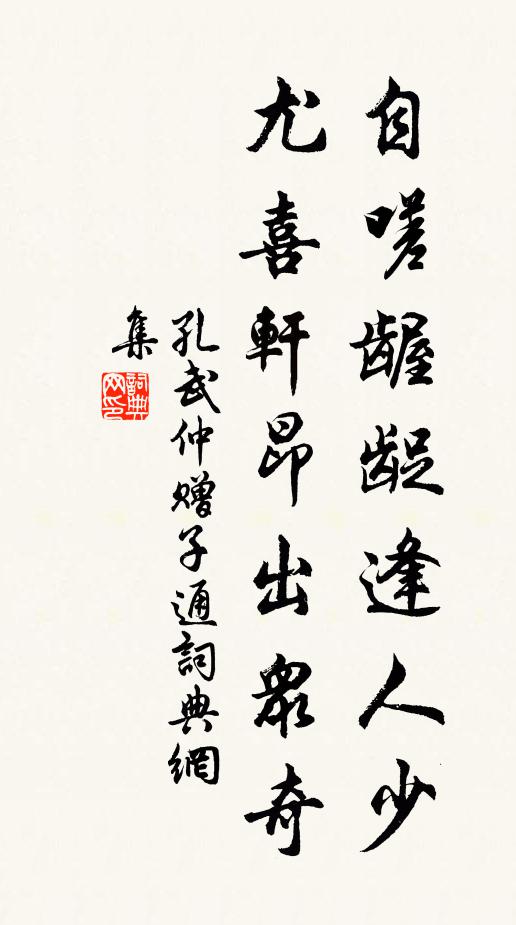 自嗟齷齪逢人少
尤喜軒昂出眾奇
孔武仲贈子通詞典網
集
詞典
网印